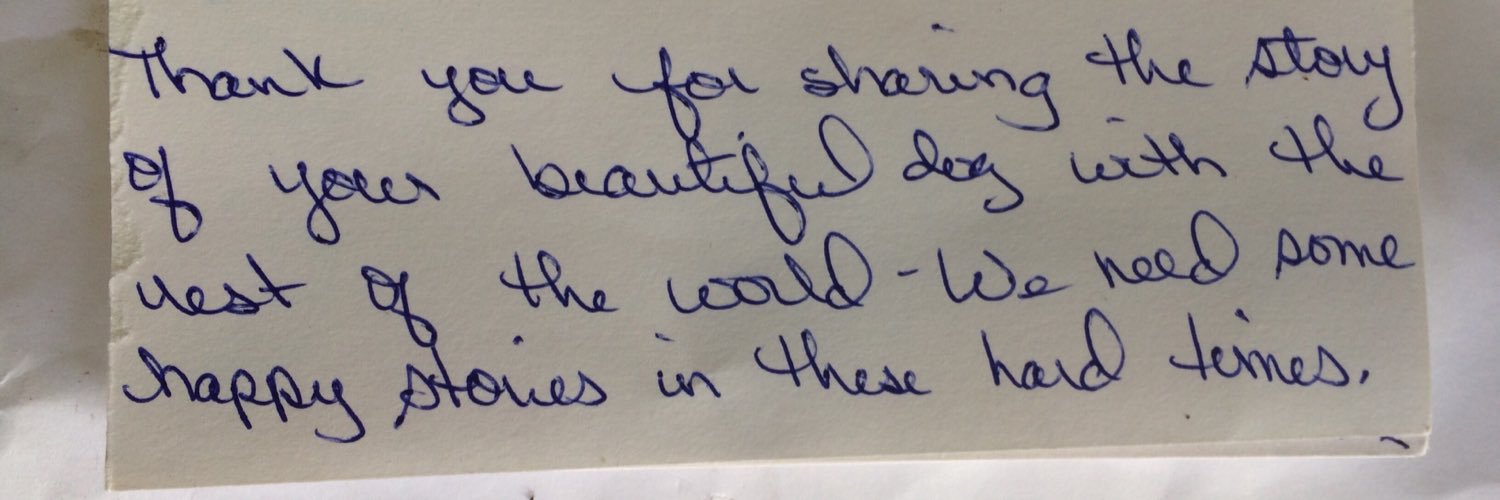 Thank you for sharing the story
of your beautiful dog with the
rest of the world - We need some
happy stories in these hard times.